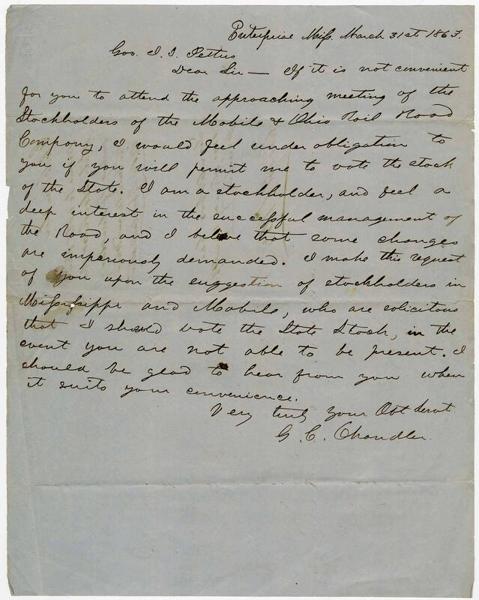 Enterprise Miss. March 31st 1863.
Gov. J. J. Pettus
Dear Sir — If it is not convenient
for you to attend the approaching meeting of the
Stockholders of the Mobile & Ohio Rail Road
Company, I would feel under obligation to
you if you will permit me to vote the stock
of the State. I am a stockholder, and feel a
deep interest in the successful management of
the Road, and I believe that some changes
are imperiously demanded. I make this request
of you upon the suggestion of stockholders in
Mississippi and Mobile, who are solicitous
that I should vote the State Stock, in the
event you are not able to be present. I
should be glad to hear from you when
it suits your convenience.
Very truly your Obt Servt
G. C. Chandler.